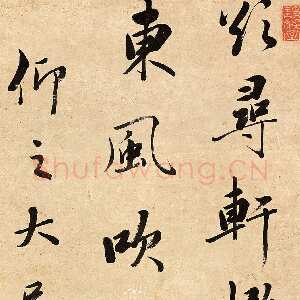 欲尋軒
東風吹
仰之大
shufawang.CN